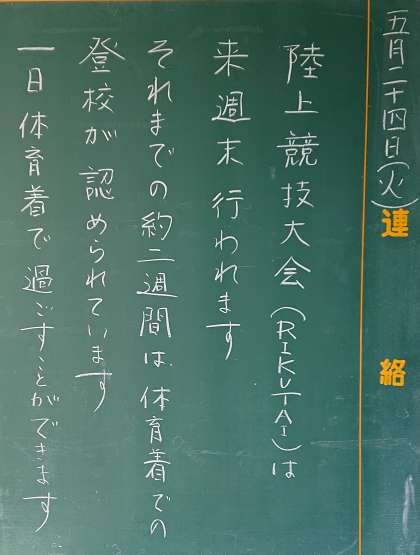 五月二十四日(火)
連絡
陸上競技大会(RIKUTAI)は
来週末 行われます
それまでの約二週間は、体育着での
登校が 認められています
一日 体育着で 過ごすことができます